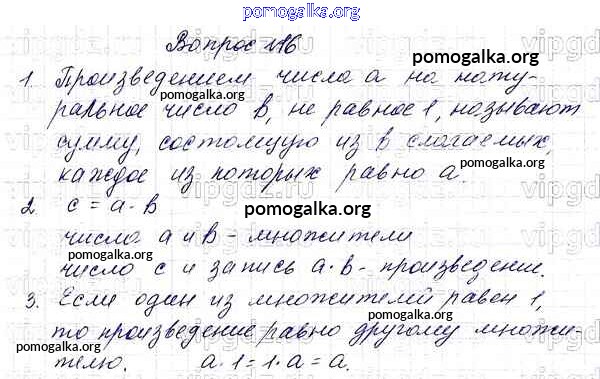 pomogalka.org
Вопрос №16
pomogalka.org
1. Произведением числа a на нату-
ральное число b, не равное 1, называют
pomogalka.org
сумму, состоящую из b слагаемых,
pomogalka.org
каждое из которых равно a.
2. c = a · b
pomogalka.org
число a и b - множители
число c и запись a · b - произведение.
pomogalka.org
3. Если один из множителей равен 1,
pomogalka.org
то произведение равно другому множи-
pomogalka.org
телю. a · 1 = 1 · a = a.
pomogalka.org